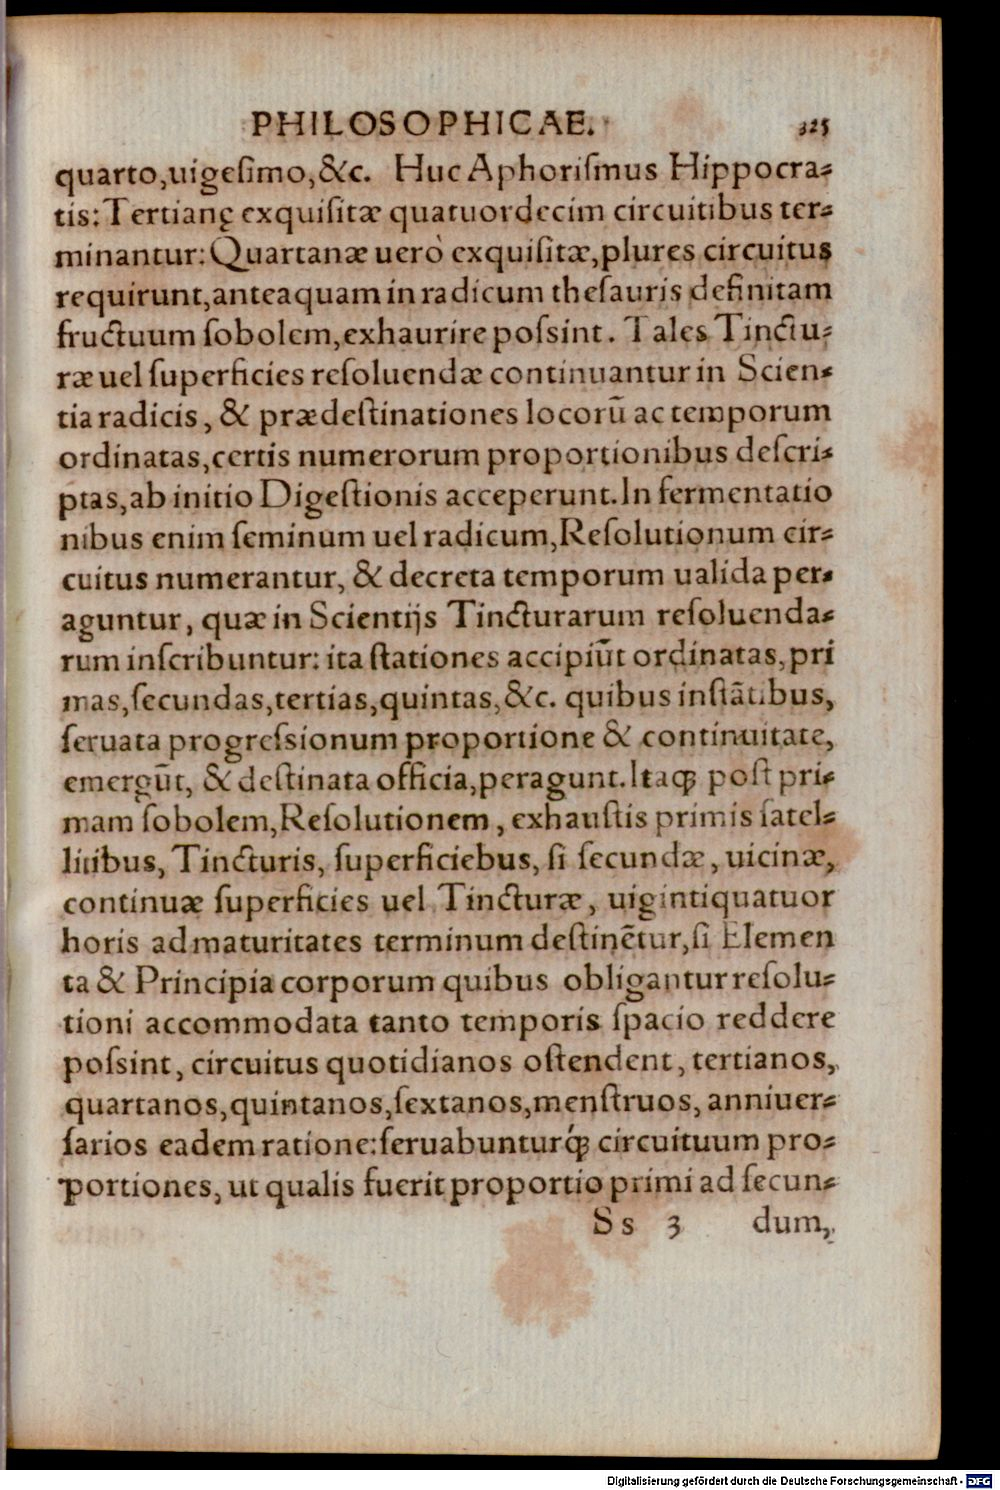 PHILOSOPHICAE. 325
quarto,uigesimo,&c. Huc Aphoriſmus Hippocra-
tis: Tertianę exquiſitæ quatuordecim circuitibus ter-
minantur: Quartanæ uerò exquiſitæ, plures circuitus
requirunt, anteaquam in radicum theſauris definitam
fructuum ſobolem, exhaurire poſsint. Tales Tinctu-
ræ uel ſuperficies reſoluendæ continuantur in Scien-
tia radicis, & prædeſtinationes locorū ac temporum
ordinatas, certis numerorum proportionibus deſcri-
ptas, ab initio Digeſtionis acceperunt. In fermentatio
nibus enim ſeminum uel radicum, Reſolutionum cir-
cuitus numerantur, & decreta temporum ualida per-
aguntur, quæ in Scientijs Tincturarum reſoluenda-
rum inſcribuntur: ita ſtationes accipiūt ordinatas, pri
mas, ſecundas, tertias, quintas, &c. quibus inſtātibus,
ſeruata progreſsionum proportione & continuitate,
emergūt, & deſtinata officia, peragunt. Itaq; poſt pri-
mam ſobolem, Reſolutionem, exhauſtis primis ſatel-
litibus, Tincturis, ſuperficiebus, ſi ſecundæ, uicinæ,
continuæ ſuperficies uel Tincturæ, uigintiquatuor
horis ad maturitates terminum deſtinētur, ſi Elemen
ta & Principia corporum quibus obligantur reſolu-
tioni accommodata tanto temporis ſpacio reddere
poſsint, circuitus quotidianos oſtendent, tertianos,
quartanos, quintanos, ſextanos, menſtruos, anniuer-
ſarios eadem ratione: ſeruabunturq́; circuituum pro-
portiones, ut qualis fuerit proportio primi ad ſecun-
Ss 3 dum,
Digitalisierung gefördert durch die Deutsche Forschungsgemeinschaft - DFG